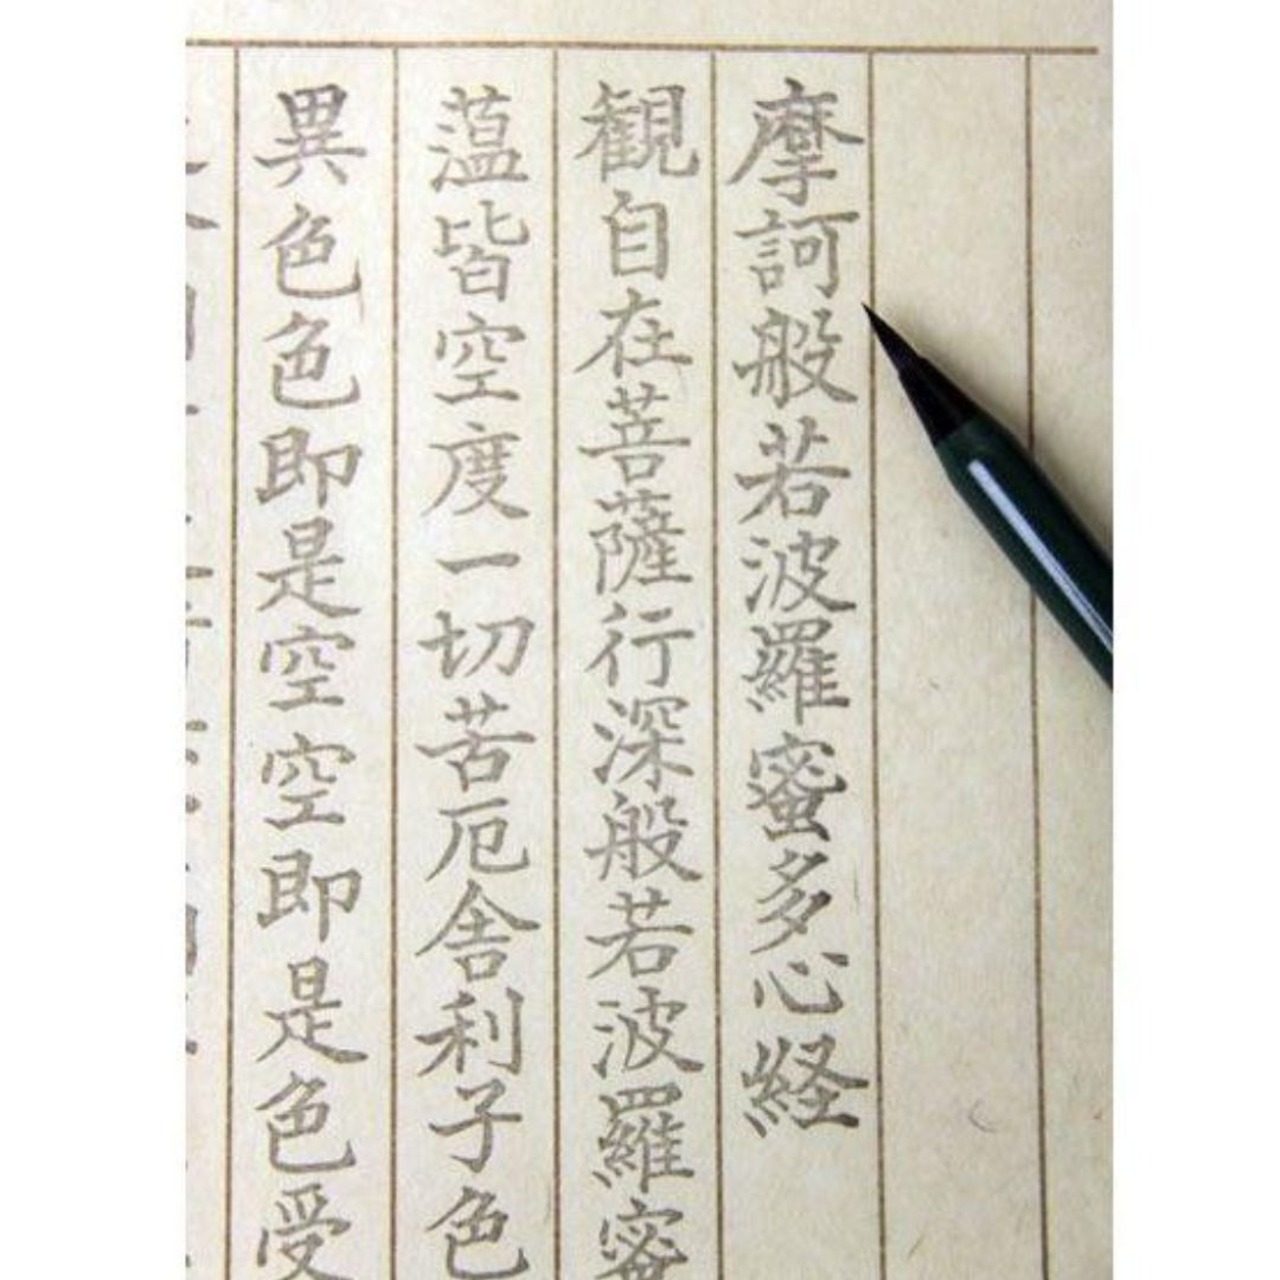 摩訶般若波羅蜜多心経
観自在菩薩行深般若波羅蜜
薀皆空度一切苦厄舎利子色
異色色即是空空即是色受